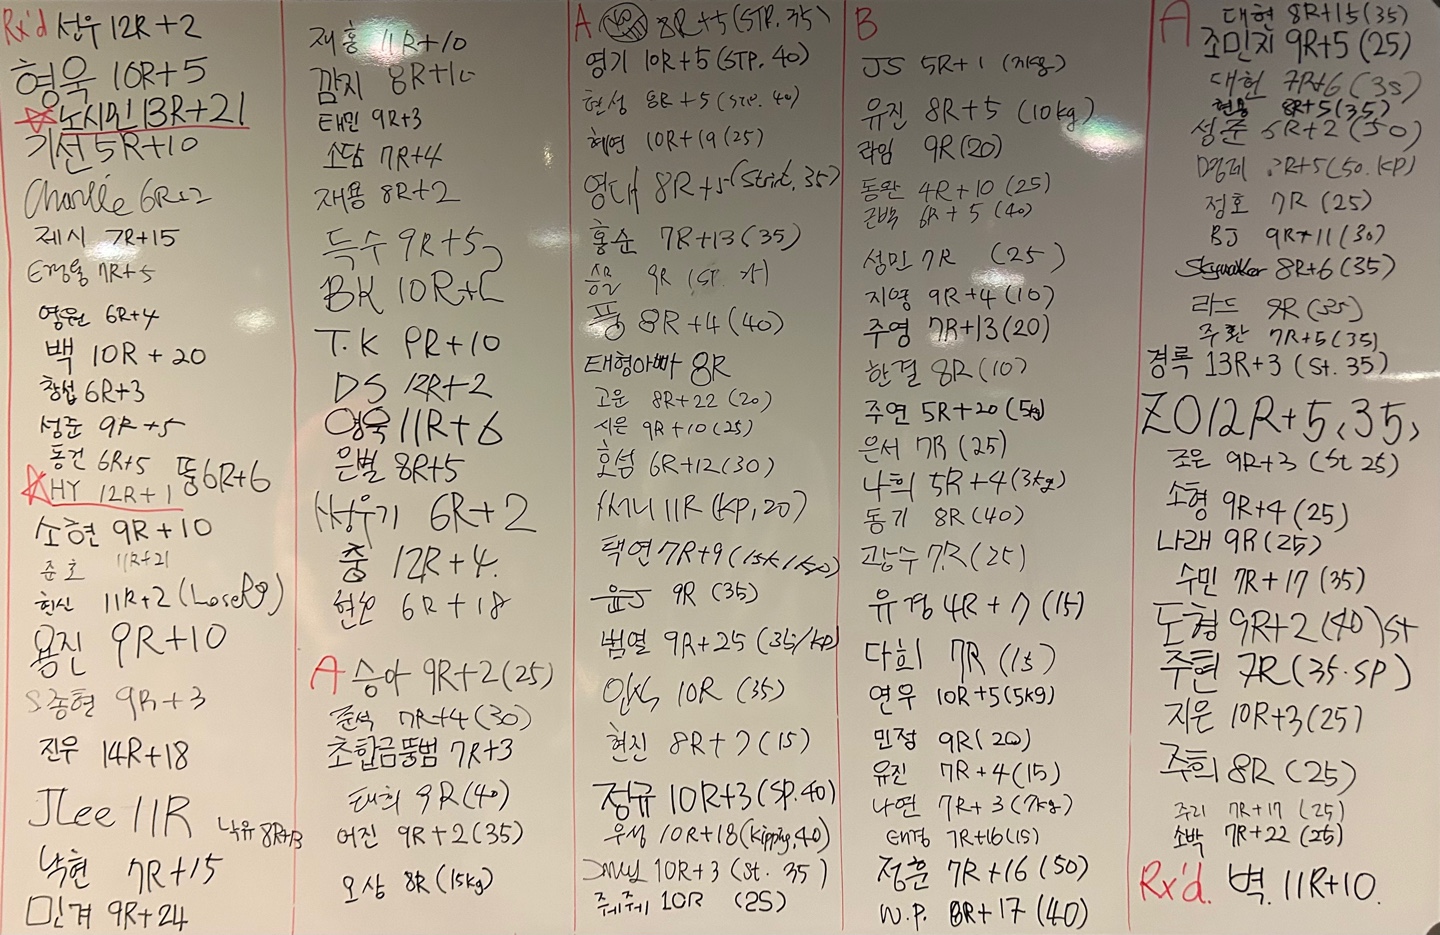 Rx'd 선우 12R+2
형욱 10R+5
노시민 13R+21
기선 5R+10
Charlie 6R+2
제시 7R+15
7R+5
영원 6R+4
백 10R+20
창섭 6R+3
성준 9R+5
동건 6R+5
뚱 6R+6
HY 12R+1
소현 9R+10
준호 11R+21
헌신 11R+2 (Loser)
용진 9R+10
S종현 9R+3
진우 14R+18
JLee 11R
낙유 8R+13
낙현 7R+15
민경 9R+24
재홍 11R+10
깜지
태민 9R+3
소담 7R+4
재용 8R+2
득수 9R+5
BK 10R+
T.K 9R+10
DS 12R+2
영욱 11R+6
은별 8R+5
6R+2
충 12R+4.
6R+18
A 승아 9R+2 (25)
준석 7R+4 (30)
초합금뚱범 7R+3
태희 9R (40)
어진 9R+2 (35)
오상 8R (15kg)
A 8R+5 (STP, 35)
영기 10R+5 (STP. 40)
현성 8R+5 (STP. 40)
혜연 10R+19 (25)
영대 8R+5 (Strict, 35)
홍순 7R+13 (35)
9R
풍 8R+4 (40)
태형아빠 8R
고운 8R+22 (20)
시은 9R+10 (25)
호섭 6R+12 (30)
써니 11R (KP, 20)
택연 7R+9
윤J 9R (35)
범열 9R+25 (35/KP)
10R (35)
현진 8R+7 (15)
정규 10R+3 (SP. 40)
우성 10R+18 (Kipping, 40)
10R+3 (St. 35)
쥬쥬 10R (25)
B
JS 5R+1
유진 8R+5 (10kg)
라임 9R (20)
동완 4R+10 (25)
6R+5 (40)
성민 7R (25)
지영 9R+4 (10)
주영 7R+13 (20)
한결 8R (10)
주연 5R+20 (5kg)
은서 7R (25)
나희 5R+4 (3kg)
동기 8R (40)
광수 7R (25)
유경 4R+7 (15)
다희 7R (15)
연우 10R+5 (5kg)
민정 9R (20)
유진 7R+4 (15)
나연 7R+3 (7kg)
태경 7R+16 (15)
정훈 7R+16 (50)
W.P. 8R+17 (40)
A 대현 8R+15 (35)
조민지 9R+5 (25)
대헌 7R+6 (35)
현용 8R+5 (35)
성준 6R+2 (50)
R+5 (50. KP)
정호 7R (25)
BJ 9R+11 (30)
Skywalker 8R+6 (35)
라드 9R (35)
주환 7R+5 (35)
경록 13R+3 (St. 35)
ZO 12R+5, 35,
조은 9R+3 (St 25)
소형 9R+4 (25)
나래 9R (25)
수민 7R+17 (35)
도형 9R+2 (40) st
주현 7R (35. SP)
지은 10R+3 (25)
주희 8R (25)
주리 7R+17 (25)
소박 7R+22 (25)
Rx'd. 벽. 11R+10.